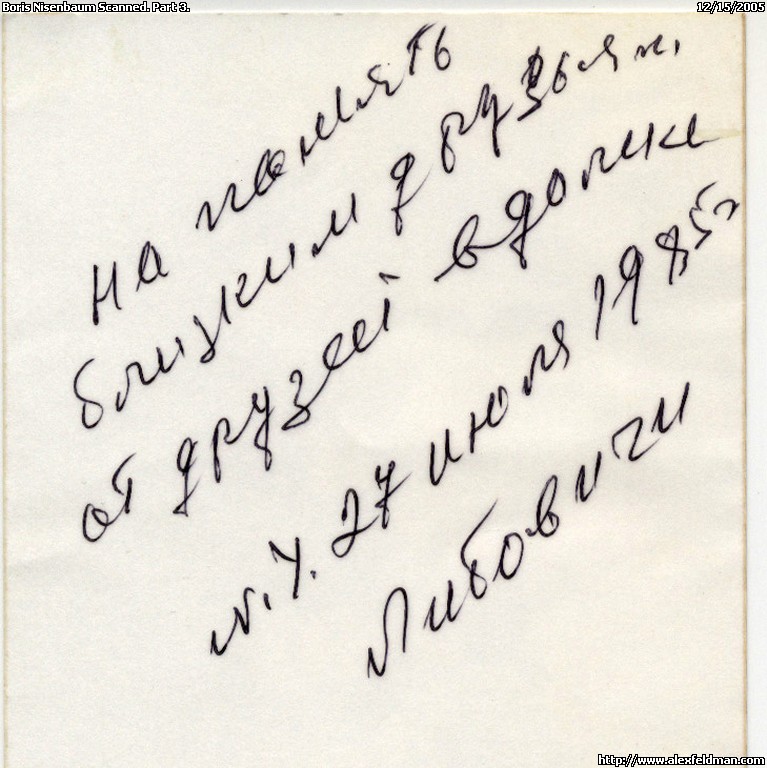 Boris Nisenbaum Scanned. Part 3.
12/15/2005
на память
близким друзьям,
от друзей вдолики
N.Y. 27 июля 1985г
Либовичи
http://www.alexfeldman.com